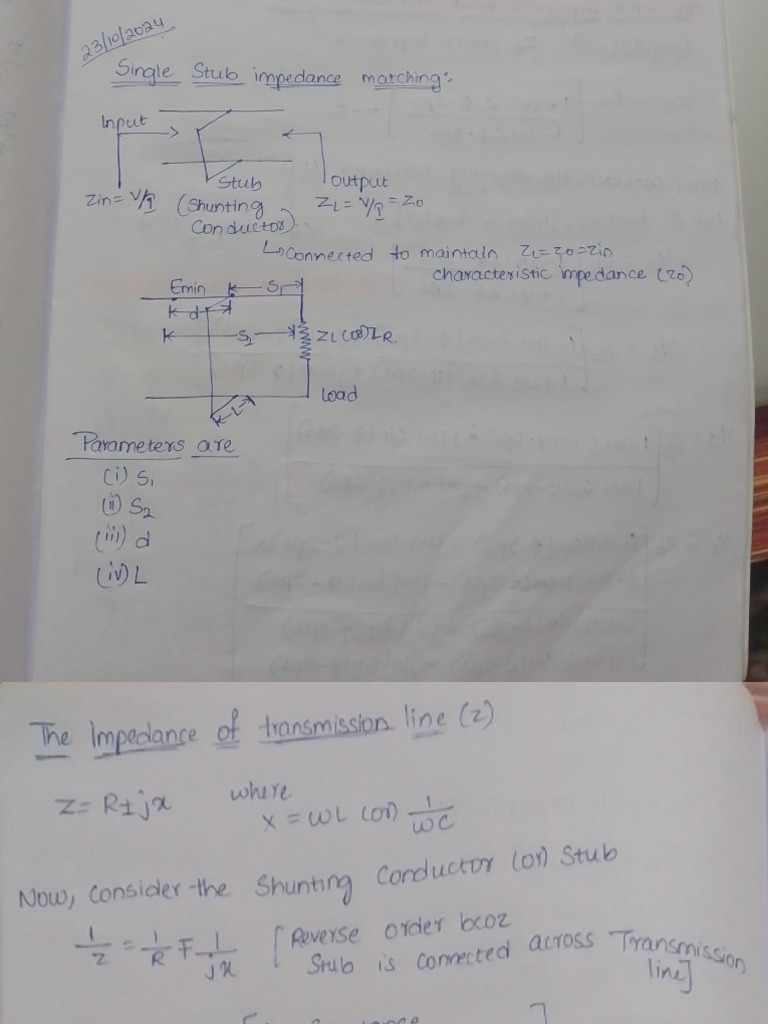 23/10/2024
Single Stub impedance matching:
Input
Stub
output
Zin = V/I (Shunting Conductor) ZL = V/I = Z0
↳Connected to maintain ZL = Z0 = Zin
characteristic impedance (Z0)
Emin S1
d
S2 ZL (or) ZR
L Load
Parameters are
(i) S1
(ii) S2
(iii) d
(iv) L
The Impedance of transmission line (z)
Z = R ± jx where
X = ωL (or) 1/ωC
Now, consider the Shunting Conductor (or) Stub
1/Z = 1/R ∓ 1/jx [Reverse order bcoz
Stub is connected across Transmission
line]